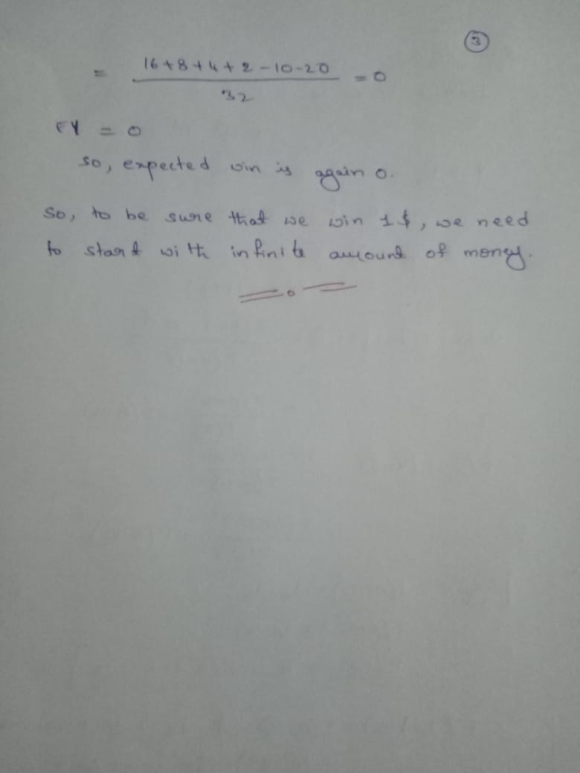 3
= 16+8+4+2-10-20 / 32 = 0
EY = 0
so, expected win is again 0.
so, to be sure that we win 1$, we need
to start with infinite amount of money.